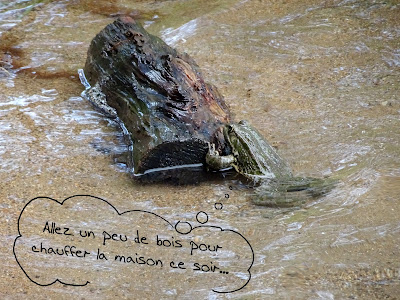 Allez un peu de bois pour
chauffer la maison ce soir...